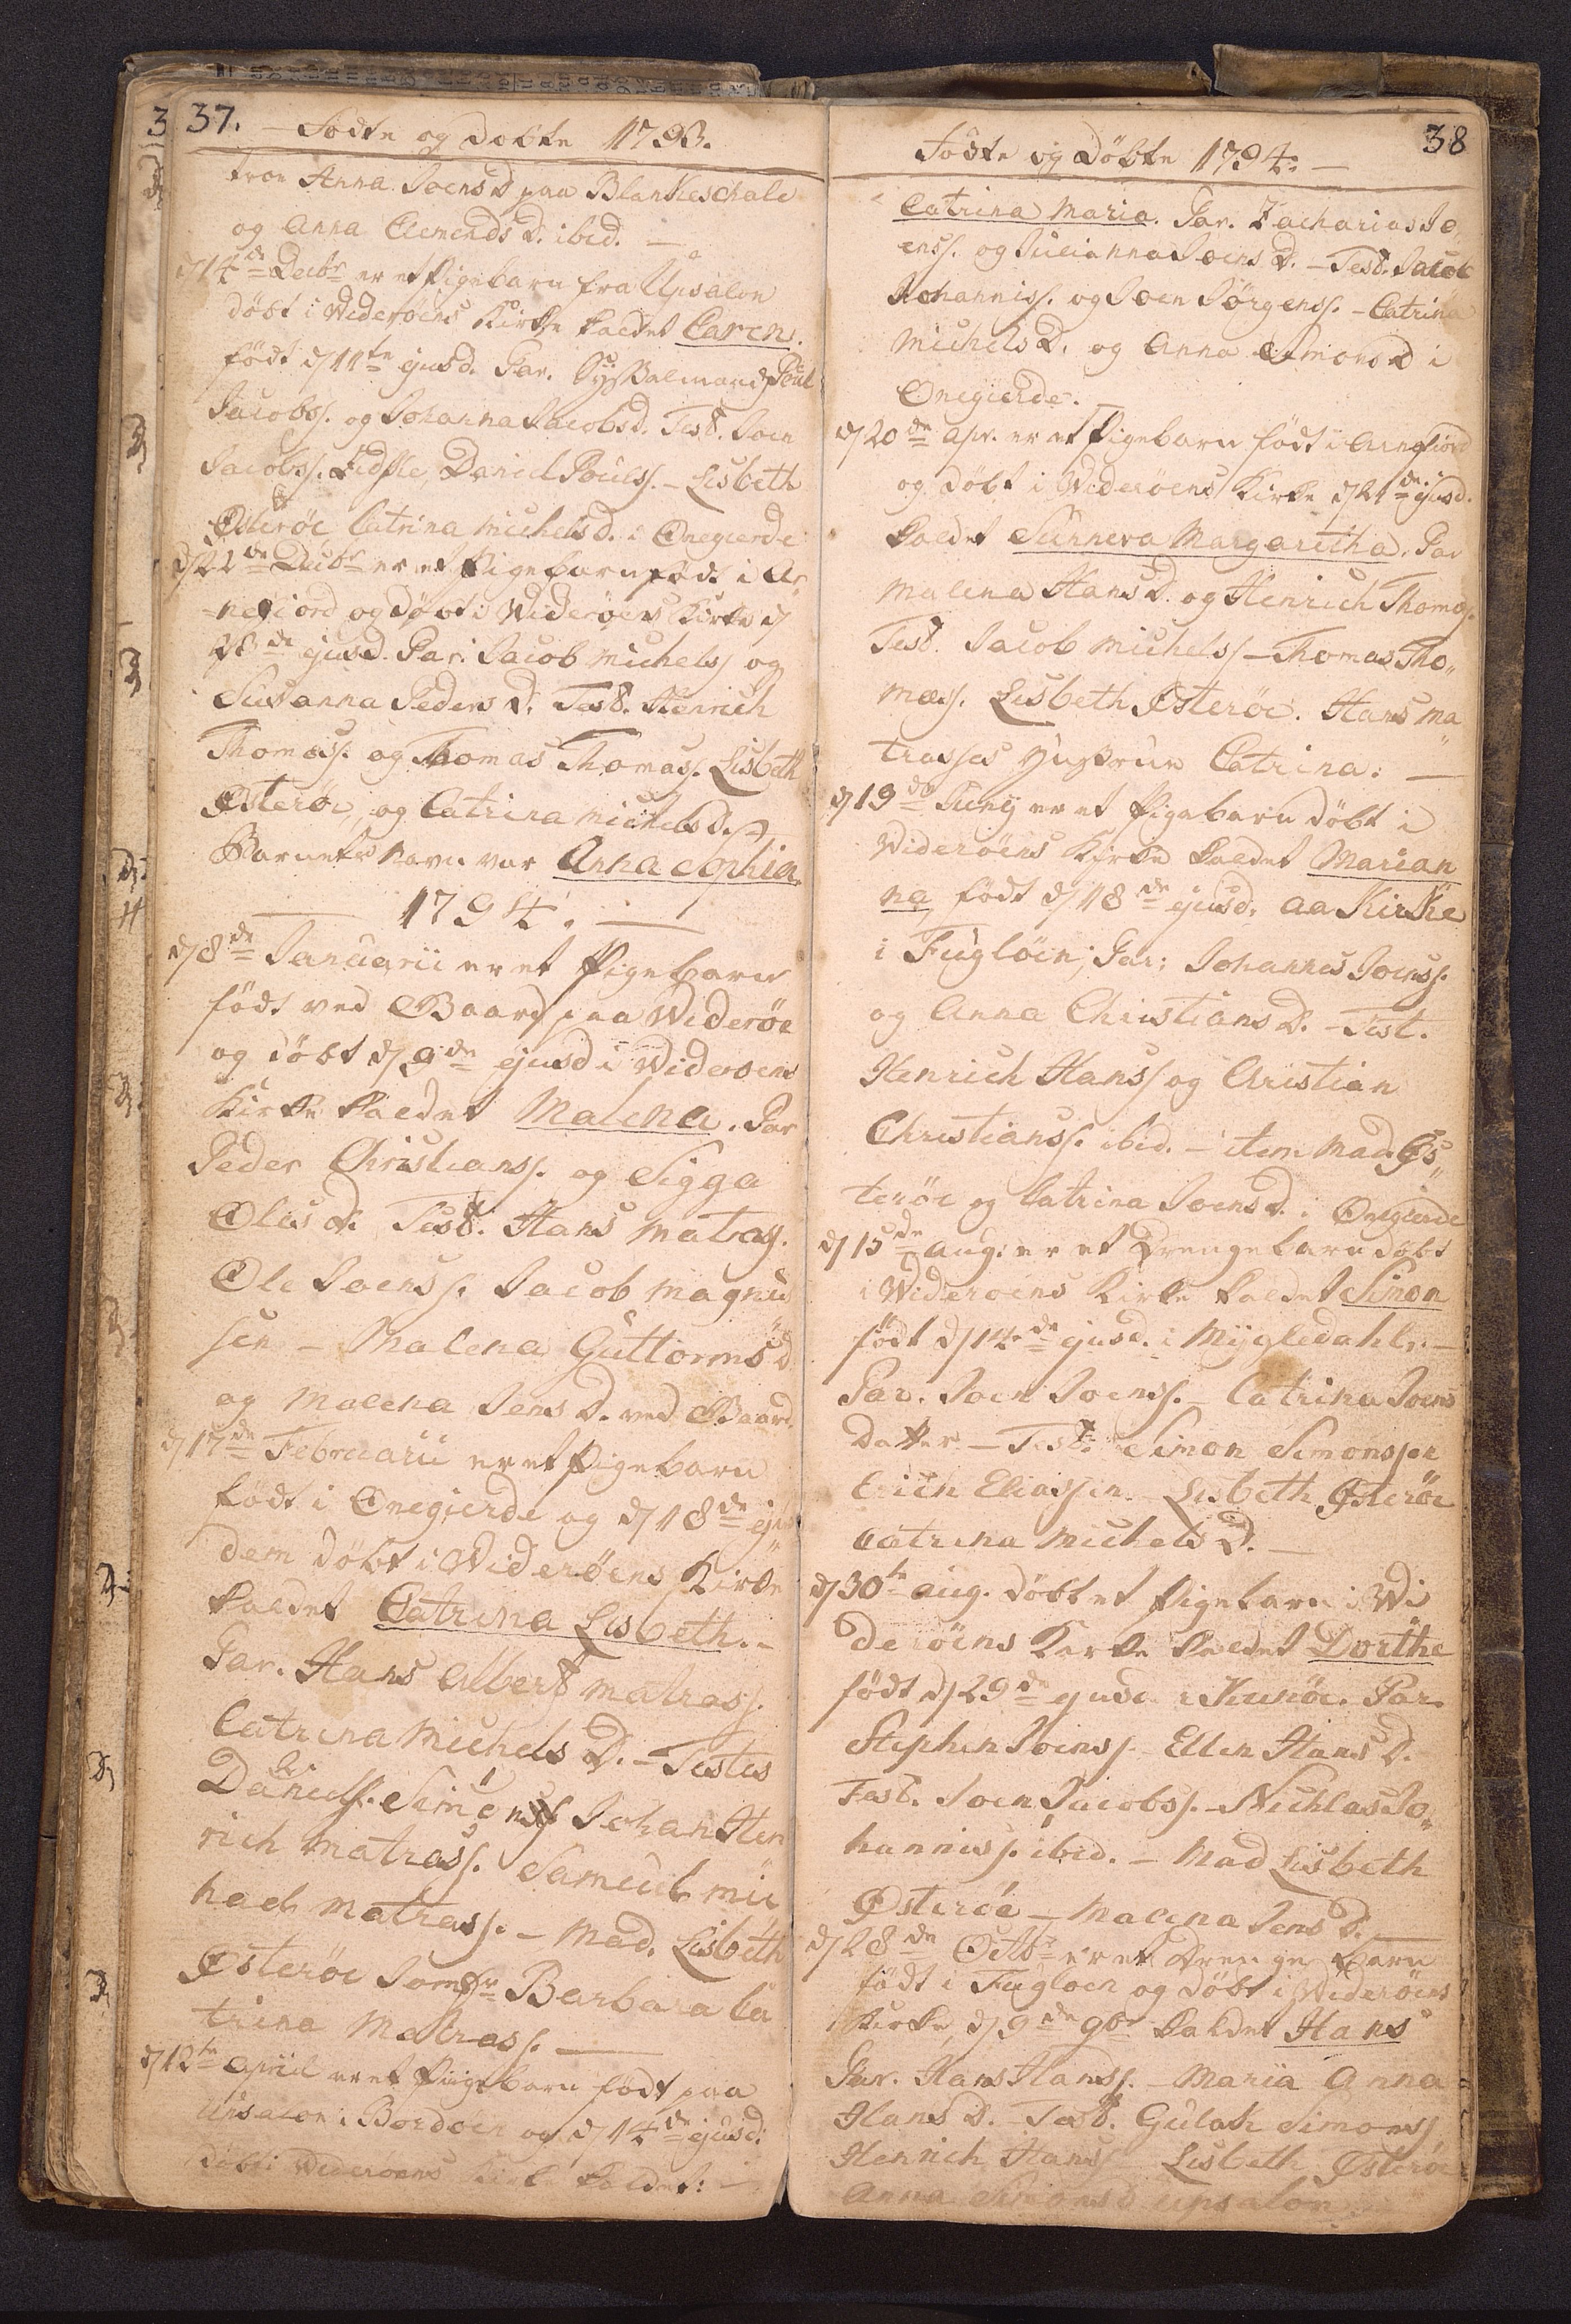 37.
Födte og Döbte 1793.
tron Anna Joens D paa Blankeschale
og Anna Clemends D. ibid. —
d/ 14de Decbr er et Pigebarn fra Upsalon
döbt i Wideröens Kirke kaldet Caren.
födt d/ 11te ejusd. Par. Sysselmand Poul
Jacobs/. og Johanna Jacobsd. Test. Joen
Jacobs/. Eidsle, Daniel Pouls/. — Lisbeth
Österöe, Catrina Michelsd. i Onegierde
d/ 22de Decbr er et Pigebarn födt i Ar
-nefiord og döbt i Wideröens Kirke d/
28de ejusd. Par. Jacob Michels/ og
Susanna Peders D. Test. Henrich
Thomas/. og Thomas Thomas/. Lisbeth
Österöe, og Catrina Michels D.
Barnets Navn var Anna Sophia.
1794. —
d/ 8de Januarii er et Pigebarn
födt ved Baard paa Wideröe
og döbt d/ 9de ejusd i Wideröens
Kirke kaldet Malena. Par
Peder Christians/. og Sigga
Oles d. Test. Hans Matras/.
Ole Joens/. Jacob Magnus
sen — Malena Guttorms d
og Malena Jens D. ved Baard.
d/ 17de Februarii er et Pigebarn
födt i Onegierde og d/ 18de ejus
dem döbt i Wideröens Kirke
kaldet Catrina Lisbeth. —
Par. Hans Albert Matras/.
Catrina Michels D. — Testes
Daniel Simons/ Johan Hen
rich Matras/. Samuel Mic
hael Matras/. — Mad. Lisbeth
Österöe Jomfr Barbara Ca
trina Matras/. —
d/ 12te April er et Pigebarn födt paa
Upsalon i Bordöen og d/ 14de ejusd.
döbt i Wideröens Kirke kaldet: —
38
Födte og Döbte 1794. —
Catrina Maria. Par. Zacharias Jo
ens/. og Julianna Joens D. — Test. Jacob
Johannis/. og Joen Jörgens/. — Catrina
Michels D. og Anna Simons D i
Onegierde.
d/ 20de Apr. er et Pigebarn födt i Arnefiord
og döbt i Wideröens Kirke d/ 21de ejusd.
kaldet Sunneva Margaretha. Par
Malena Hans D. og Henrich Thomas/.
Test. Jacob Michels/ — Thomas Tho„
mas/. Lisbeth Österöe. Hans Ma
trasses Hustrue Catrina. —
d/ 19de Junij er et Pigebarn döbt i
Wideröens Kirke kaldet Marian
na födt d/ 18de ejusd. aa Kirke
i Fuglöen; Par: Johannes Joens/.
og Anna Christians D. — Test.
Henrich Hans/ og Christian
Christians/. ibid. — item Mad. Ös„
teröe og Catrina Joens d. i Onegierde
d/ 15de Aug. er et Drengebarn döbt
i Wideröens Kirke kaldet Simon
födt d/ 14de ejusd. i Mygledahl. —
Par. Joen Joens/. — Catrina Joens
Datter — Test. Simon Simonssen
Erich Eliassen. Lisbeth Österöe
Catrina Michels D. —
d/ 30te Aug. döbt et Pigebarn i Wi
deröens Kirke kaldet Dorthe
födt d/ 29de ejusd. i Kunöe. Par.
Stephen Joens/. — Ellen Hans D.
Test. Joen Jacobs/. — Nichlas Jo„
hannis/. ibid. — Mad Lisbeth
Österöe — Malena Jens D. —
d/ 28de Octbr er et Drengebarn
födt i Fuglöen og döbt i Wideröens
Kirke d/ 9de 9br kaldet Hans
Par. Hans Hans/. — Maria Anna
Hans D. — Test. Gulak Simons/
Henrich Hans/ Lisbeth Österöe
Anna Simons d Upsalon